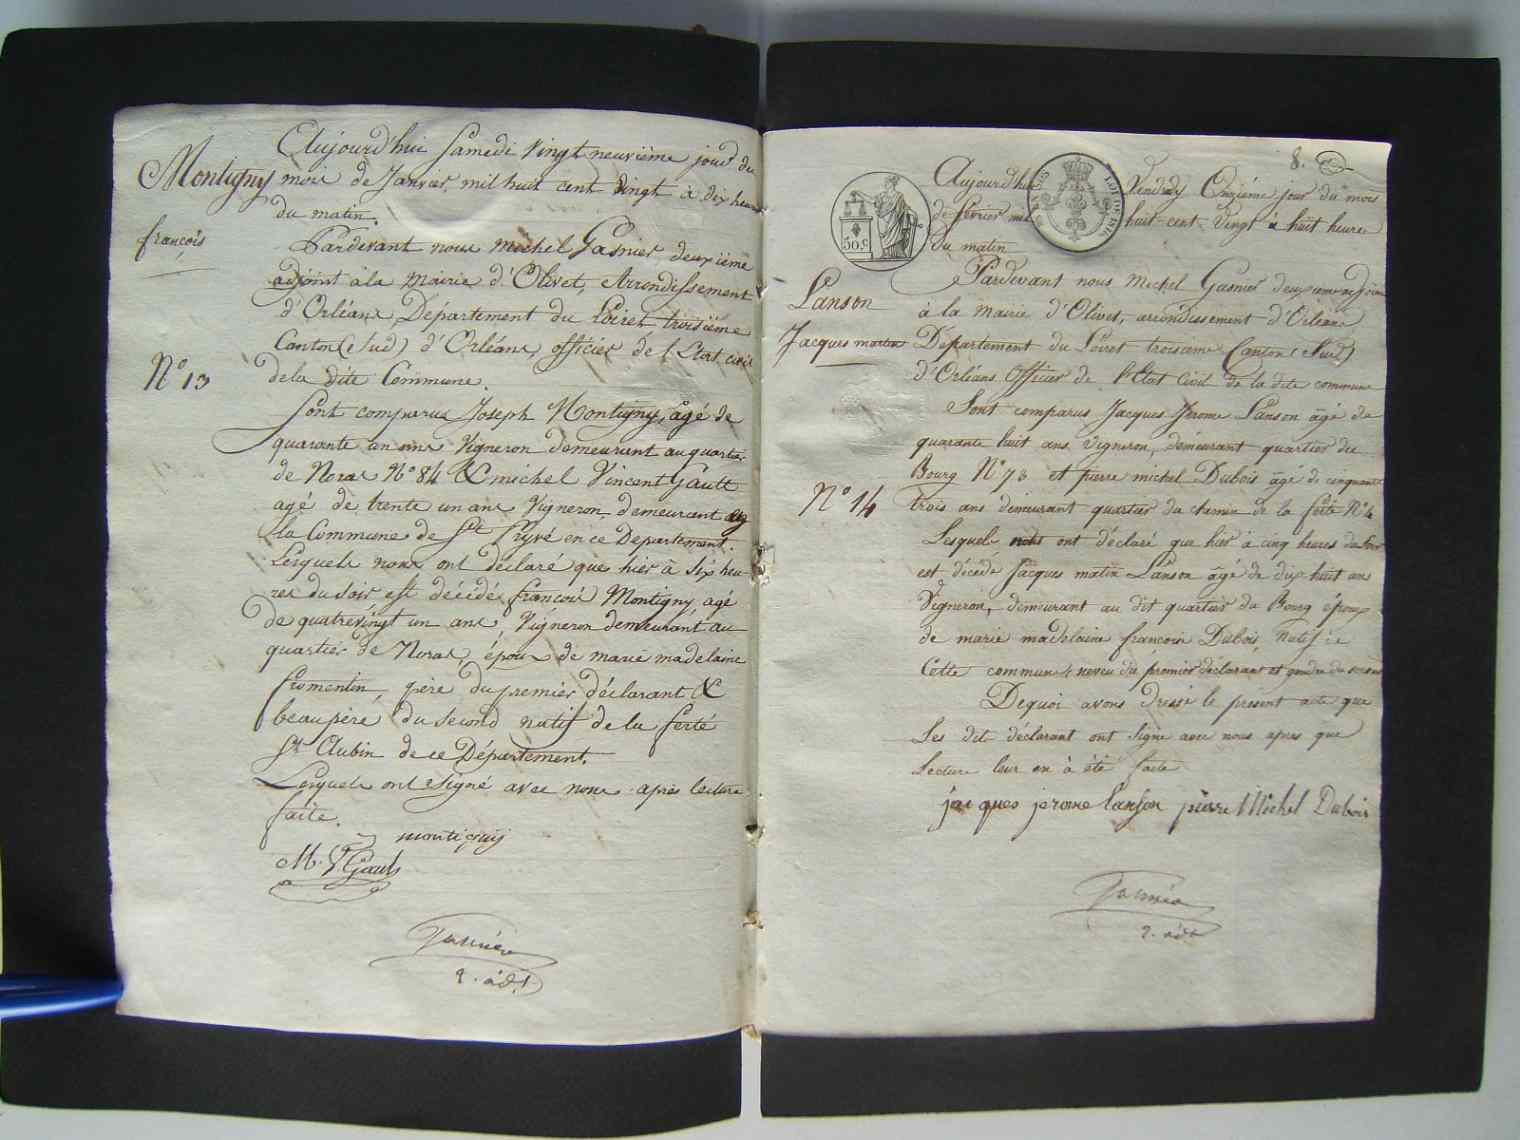 Montigny
françois
N° 13
Aujourd'hui Samedi Vingt neuvième jour du
mois de Janvier mil huit cent vingt à dix heures
du matin.
Pardevant nous Michel Gasnier deuxième
adjoint à la Mairie d'Olivet, Arrondissement
d'Orléans, Département du Loiret, troisième
Canton (Sud) d'Orléans, officier de l'Etat civil
de la dite Commune.
Sont comparus Joseph Montigny, âgé de
quarante un ans Vigneron demeurant au quartier
de Noras N° 84 & michel Vincent Gault
agé de trente un ans Vigneron, demeurant
la Commune de St Pryvé en ce Departement.
Lesquels nous ont déclaré que hier à six heu-
res du soir est décédé françois Montigny agé
de quatrevingt un ans Vigneron demeurant au
quartier de Noras, époux de marie madelaine
fromentin, père du premier déclarant &
beaupère du second natif de la ferté
St Aubin de ce Département.
Lesquels ont signé avec nous après lecture
faite.
montigny
M. V. Gault
Gasnier
2. adj.
8.
50 c
Lanson
Jacques martin
N° 14
Aujourd'hui Vendredy Onzième jour du mois
de fevrier mil huit cent Vingt à huit heures
du matin
Pardevant nous Michel Gasnier deuxieme adjoint
à la Mairie d'Olivet, arrondissement d'Orléans
Département du Loiret troisieme Canton (Sud)
d'Orléans Officier de l'Etat Civil de la dite commune
Sont comparus Jacques Jerome Lanson âgé de
quarante huit ans Vigneron, demeurant quartier du
Bourg N° 73 et pierre michel Dubois âgé de cinquante
trois ans demeurant quartier du chemin de la ferté N° 4
Lesquels nous ont déclaré que hier à cinq heures du soir
est décédé Jacques matin Lanson âgé de dix huit ans
Vigneron, demeurant au dit quartier du Bourg époux
de marie madelaine francoise Dubois, natif de
Cette commune, neveu du premier déclarant et gendre du second
Dequoi avons Dressé le present acte que
Les dit déclarant ont signe avec nous apres que
Lecture leur en à été faite
jacques jerome lanson pierre Michel Dubois
Gasnier
2. adt